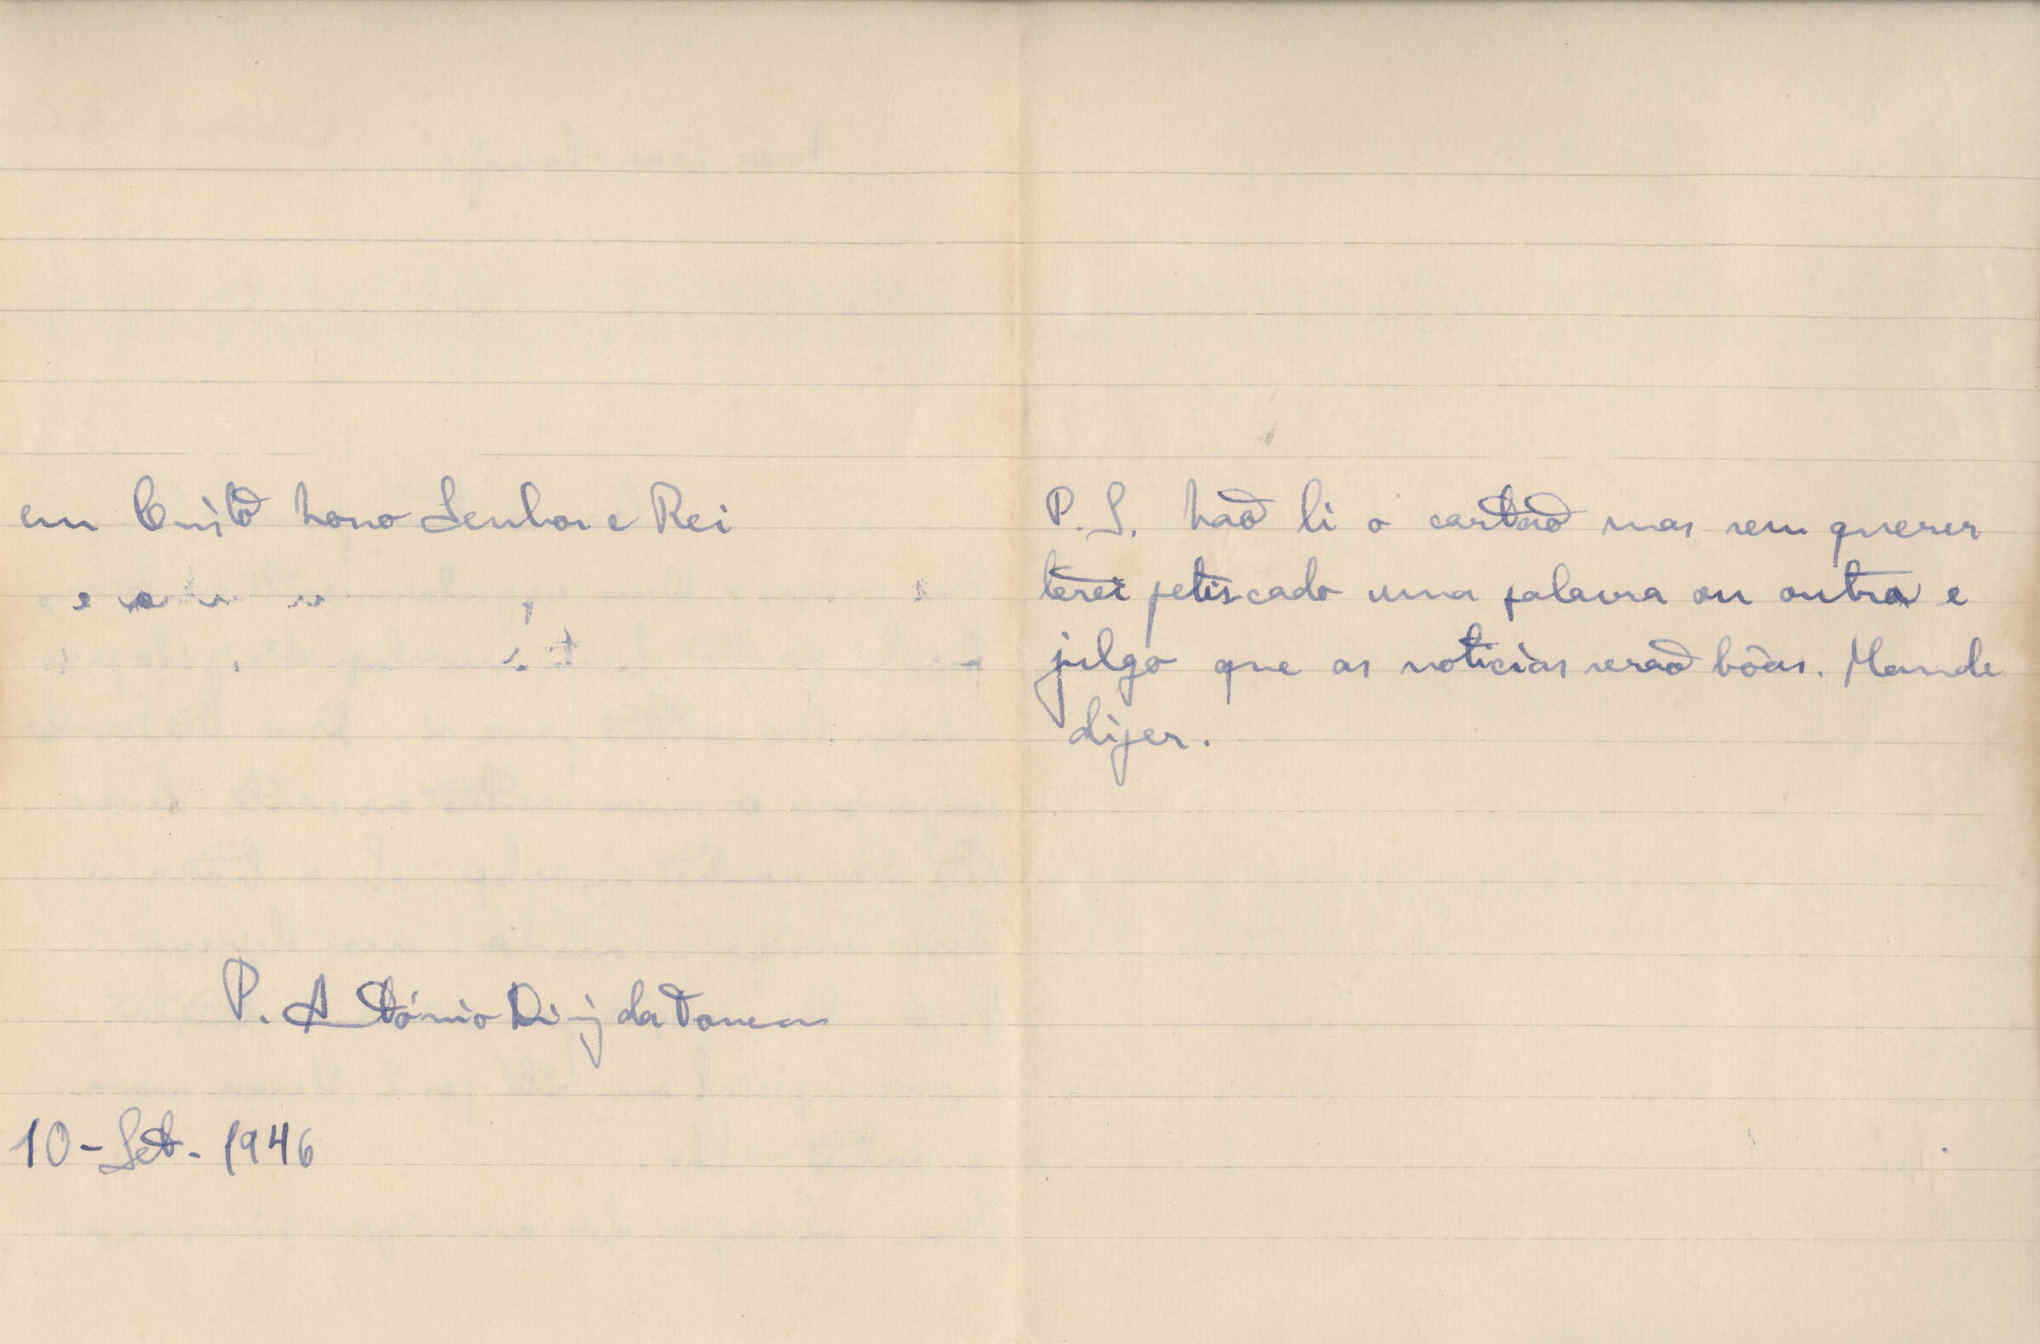 em Cristo Nosso Senhor e Rei
P. António Diz da Fonseca
10-Set-1946
P.S. Não li o cartão mas sem querer
terei petiscado uma palavra ou outra e
julgo que as noticias serão bôas. Mande
dizer.